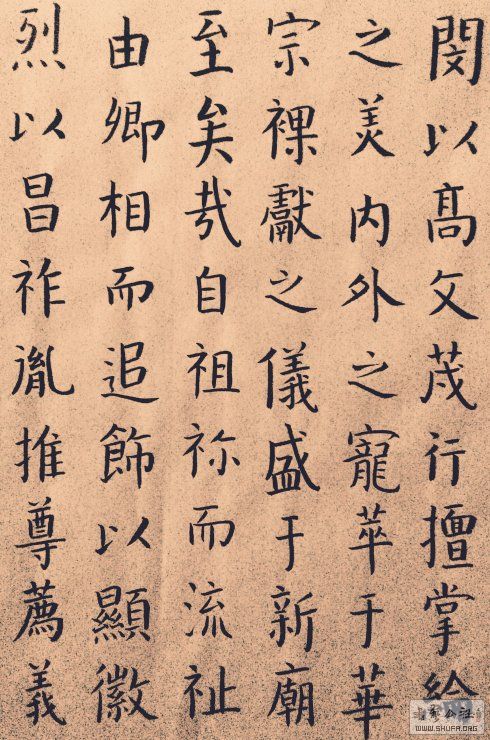 閔以髙文茂行擅掌給
之美内外之寵萃于華
宗祼獻之儀盛于新廟
至矣哉自祖祢而流祉
由卿相而追飾以顯徽
烈以昌祚胤推尊薦義
WWW.SHUFA.ORG